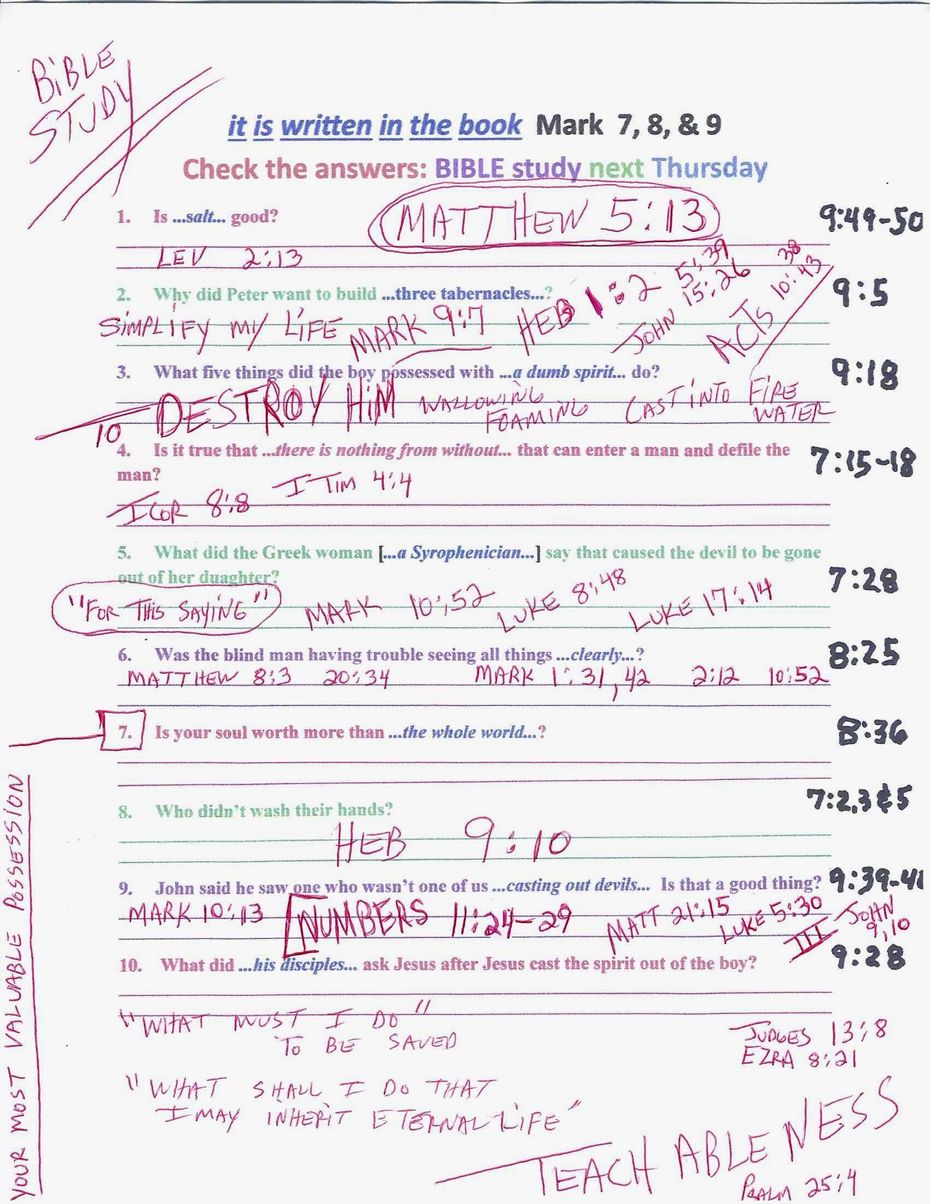 BIBLE
STUDY
it is written in the book Mark 7, 8, & 9
Check the answers: BIBLE study next Thursday
1. Is ...salt... good?
MATTHEW 5:13
9:49-50
LEV 2:13
2. Why did Peter want to build ...three tabernacles...?
9:5
SIMPLIFY MY LIFE MARK 9:7 HEB 1:2 JOHN 5:39 15:26 ACTS 10:38 43
3. What five things did the boy possessed with ...a dumb spirit... do?
9:18
10 DESTROY HIM WALLOWING FOAMING CAST INTO FIRE WATER
4. Is it true that ...there is nothing from without... that can enter a man and defile the
man?
7:15-18
I COR 8:8 I TIM 4:4
5. What did the Greek woman [...a Syrophenician...] say that caused the devil to be gone
out of her duaghter?
7:28
"FOR THIS SAYING" MARK 10:52 LUKE 8:48 LUKE 17:14
6. Was the blind man having trouble seeing all things ...clearly...?
8:25
MATTHEW 8:3 20:34 MARK 1:31,42 2:12 10:52
7. Is your soul worth more than ...the whole world...?
8:36
8. Who didn't wash their hands?
7:2,3&5
HEB 9:10
9. John said he saw one who wasn't one of us ...casting out devils... Is that a good thing?
9:39-41
MARK 10:13 NUMBERS 11:24-29 MATT 21:15 LUKE 5:30 III JOHN 9,10
10. What did ...his disciples... ask Jesus after Jesus cast the spirit out of the boy?
9:28
"WHAT MUST I DO"
TO BE SAVED
JUDGES 13:8
EZRA 8:21
"WHAT SHALL I DO THAT
I MAY INHERIT ETERNAL LIFE"
TEACHABLENESS
PSALM 25:4
YOUR MOST VALUABLE POSSESSION